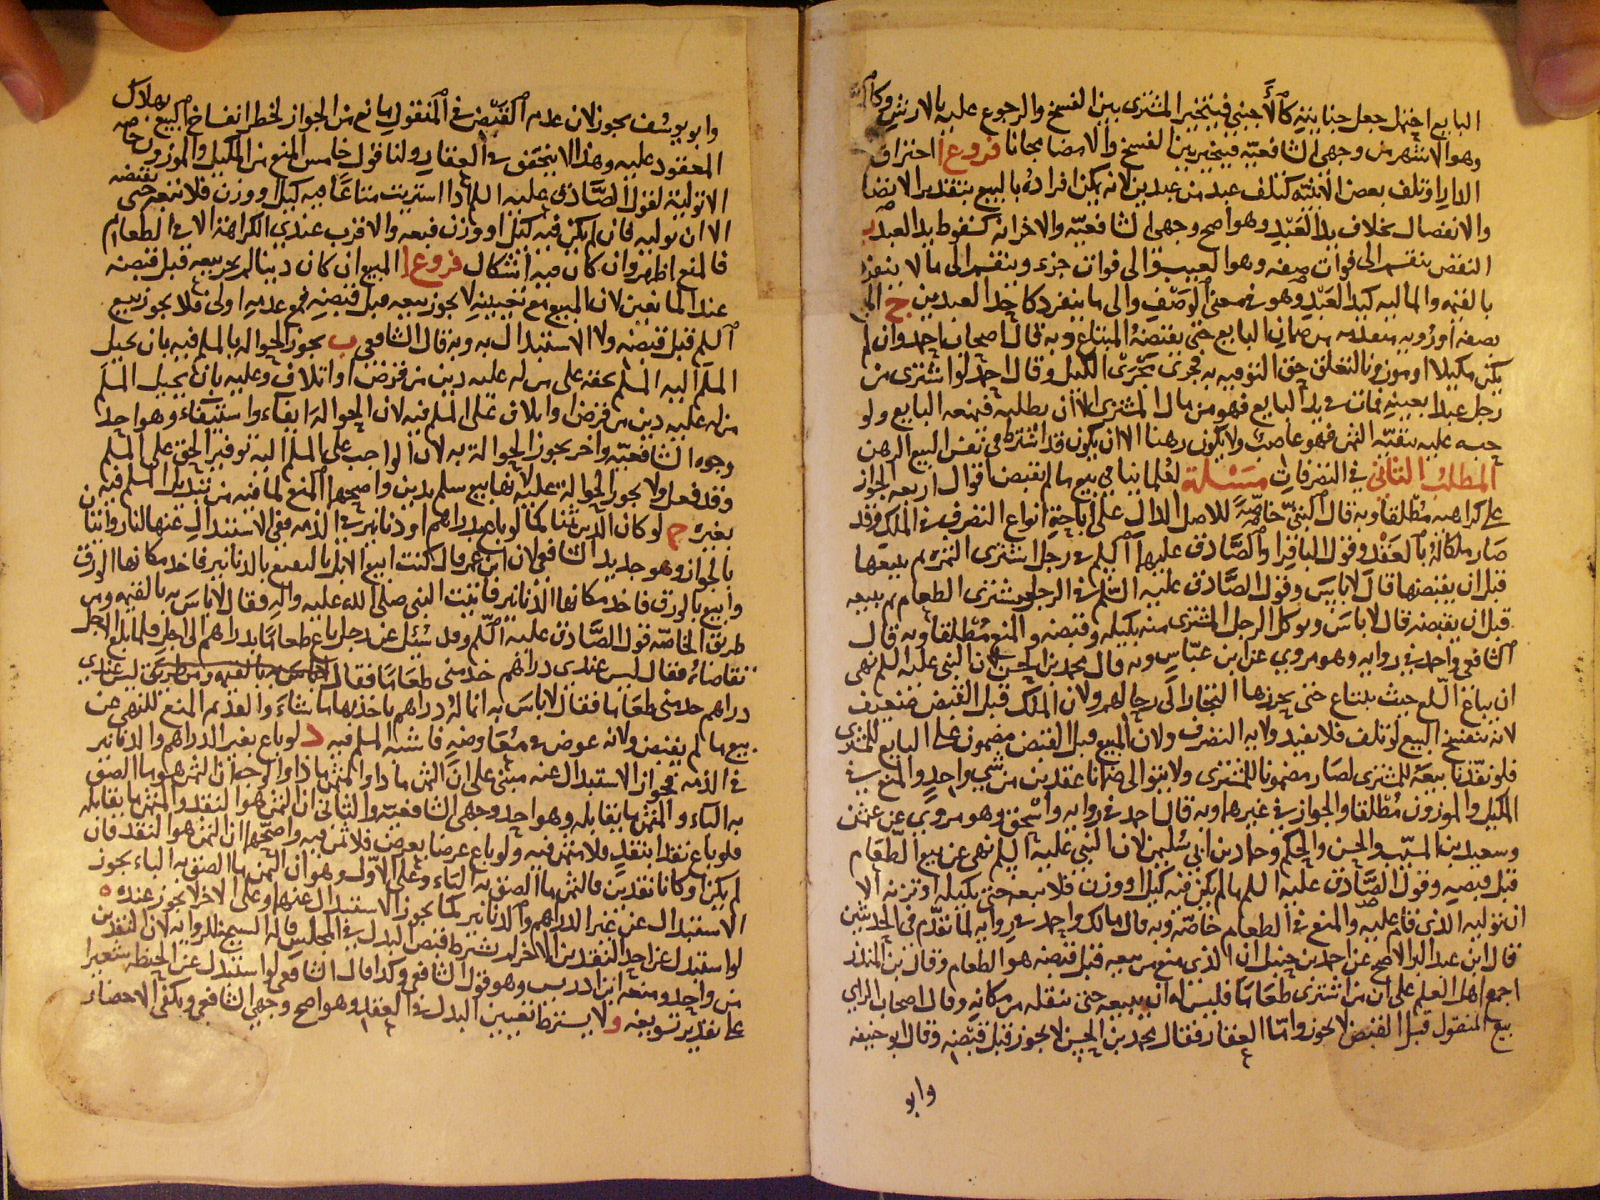 البايع احتمل جعل جنايته كالأجنبي فيتخير المشتري بين الفسخ والرجوع عليه بالارش وكالـ
وهو الاشهر من وجهي الشافعية فيتخير بين الفسخ والامضا مجانا فروع ا احتراق
الدار او تلف بعض الابنية كتلف عبد من عبدين لانه يمكن افراده بالبيع بتقدير الاتصا
والانفصال بخلاف يد العبد وهو اصح وجهي الشافعية والاخر انه كسقوط يد العبد ب
النقص ينقسم الى فوات صفه وهو العيب والى فوات جزء وينقسم الى ما لا ينفرد
بالقيمه والماليه كيد العبد وهو في معنى الوصف والى ما ينفرد كاحد العبدين ج المبيع
بصفه او رويه متقدمه من ضمان البايع حتى يقبضه المبتاع وبه قال اصحاب احمد وان لم
يكن مكيلا او موزونا لتعلق حق التوفيه به فجرى مجرى الكيل وقال احمد لو اشترى من
رجل عبدا بعينه فمات في يد البايع فهو من مال المشتري الا ان يطلبه فيمنعه البايع ولو
حبسه عليه ببقية الثمن فهو غاصب ولا يكون رهنا الا ان يكون قد اشترط في نفس البيع الرهن
المطلب الثاني في التصرفات مسئلة لعلمائنا في بيع ما لم يقبض اقوال اربعه الجواز
على كراهيه مطلقا وبه قال البتي خاصة للاصل الدال على اباحة انواع التصرف في الملك وقد
صار ملكا له بالعقد وقول الباقر او الصادق عليهما السلم في رجل اشترى الثمره ثم يبيعها
قبل ان يقبضها قال لا باس وقول الصادق عليه السلم في الرجل يشتري الطعام ثم يبيعه
قبل ان يقبضه قال لا باس ويوكل الرجل المشتري منه بكيله وقبضه والمنع مطلقا وبه قال
الشافعي واحمد في روايه وهو مروي عن ابن عباس وبه قال محمد بن الحسن لان النبي عليه السلم نهى
ان يباع السلع حيث يبتاع حتى يحوزها التجار الى رحالهم ولان الملك قبل القبض ضعيف
لانه ينفسخ البيع لو تلف فلا يفيد ولايه التصرف ولان المبيع قبل القبض مضمون على البايع للمشتري
فلو نفذنا بيعه للمشتري لصار مضمونا للمشتري ولا يتوالى ضمانا عقدين من شيء واحد والمنع في
المكيل والموزون مطلقا والجواز في غيرهما وبه قال احمد في روايه واسحق وهو مروي عن عثمن
وسعيد بن المسيب والحسن والحكم وحماد بن ابي سليمن لان النبي عليه السلم نهى عن بيع الطعام
قبل قبضه وقول الصادق عليه السلم ما لم يكن فيه كيل او وزن فلا تبعه حتى تكيله او تزنه الا
ان توليه الذي قام عليه والمنع في الطعام خاصة وبه قال مالك واحمد في روايه لما تقدم في الحديثين
قال ابن عبد البر الاصح عن احمد بن حنبل ان الذي منع من بيعه قبل قبضه هو الطعام وقال ابن المنذر
اجمع اهل العلم على ان من اشترى طعاما فليس له ان يبيعه حتى ينقله من مكانه وقال اصحاب الراي
بيع المنقول قبل القبض لا يجوز واما العقار فقال محمد بن الحسن لا يجوز قبل قبضه وقال ابو حنيفه
وابو
وابو يوسف يجوز لان عدم القبض في المنقول مانع من الجواز لخطر انفساخ البيع بهلاك
المعقود عليه وهذا لا يتحقق في العقار ولنا قول خامس المنع من المكيل والموزون خاصه
الا توليه لقول الصادق عليه السلم اذا اشتريت متاعا فيه كيل او وزن فلا تبعه حتى تقبضه
الا ان توليه فان لم يكن فيه كيل او وزن فبعه والاقرب عندي الكراهة الا في الطعام
فالمنع اظهر وان كان فيه اشكال فروع ا المبيع ان كان دينا لم يجز بيعه قبل قبضه
عند المانعين لان المبيع مع تعيينه لا يجوز بيعه قبل قبضه فمع عدمه اولى فلا يجوز بيع
السلم قبل قبضه ولا الاستبدال به وبه قال الشافعي ب يجوز الحواله بالمسلم فيه بان يحيل
المسلم اليه المسلم بحقه على من له عليه دين من قرض او اتلاف وعليه بان يحيل المسلم
من له عليه دين من قرض او اتلاف على المسلم فيه لان الحواله ايفاء واستيفاء وهو احد
وجوه الشافعية واخر يجوز الحوالة به لان الواجب على المسلم اليه توفير الحق على المسلم
وقد فعل ولا يجوز الحوالة عليه لانها بيع سلم بدين واصحها المنع لما فيه من تبديل المسلم فيه
بغيره ج لو كان الدين ثمنا كما لو باع بدراهم او دنانير في الذمه ففي الاستبدال عنها لنا روايتان
بالجواز وهو جديد الشافعي لان ابن عمر قال كنت ابيع الابل بالبقيع بالدنانير فاخذ مكانها الورق
وابيع بالورق فاخذ مكانها الدنانير فاتيت النبي صلى الله عليه واله فقال لا باس به بالقيمه ومن
طريق الخاصة قول الصادق عليه السلم وقد سئل عن رجل باع طعاما بدراهم الى اجل فلما بلغ الاجل
تقاضاه فقال ليس عندي دراهم خذ مني طعاما فقال ليس عندي
دراهم خذ مني طعاما فقال لا باس به انما له دراهم ياخذ بها ما شاء والقديم المنع للنهي عن
بيع ما لم يقبض ولانه عوض في معاوضه فاشبه المسلم فيه د لو باع بغير الدراهم والدنانير
في الذمه فجواز الاستبدال عنه مبني على ان الثمن ماذا والمثمن ماذا والوجه ان الثمن هو ما الصق
به الباء والمثمن ما يقابله وهو احد وجهي الشافعية والثاني ان الثمن هو النقد والمثمن ما يقابله
فلو باع نقدا بنقد فلا مثمن فيه ولو باع عرضا بعرض فلا ثمن فيه واصحها ان الثمن هو النقد فان
لم يكن او كانا نقدين فالثمن ما الصق به الباء وعلى الاول وهو ان الثمن ما الصق به الباء يجوز
الاستبدال عن غير الدراهم والدنانير كما يجوز الاستبدال عنهما وعلى الاخر لا يجوز عنده ه
لو استبدل عن احد النقدين الاخر لم يشترط قبض البدل في المجلس قاله الشيخ للروايه لان النقدين
من واحد ومنعه ابن ادريس وهو قول الشافعي وكذا قال الشافعي لو استبدل عن الحنطه شعيرا
على تقدير تسويغه و لا يشترط تعيين البدل في العقد وهو اصح وجهي الشافعي ويكفي الاحضار